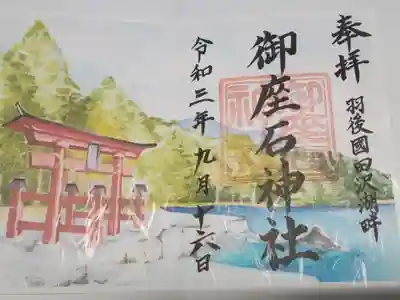 奉拝
羽後國田沢湖畔
御座石神社
令和三年九月十六日